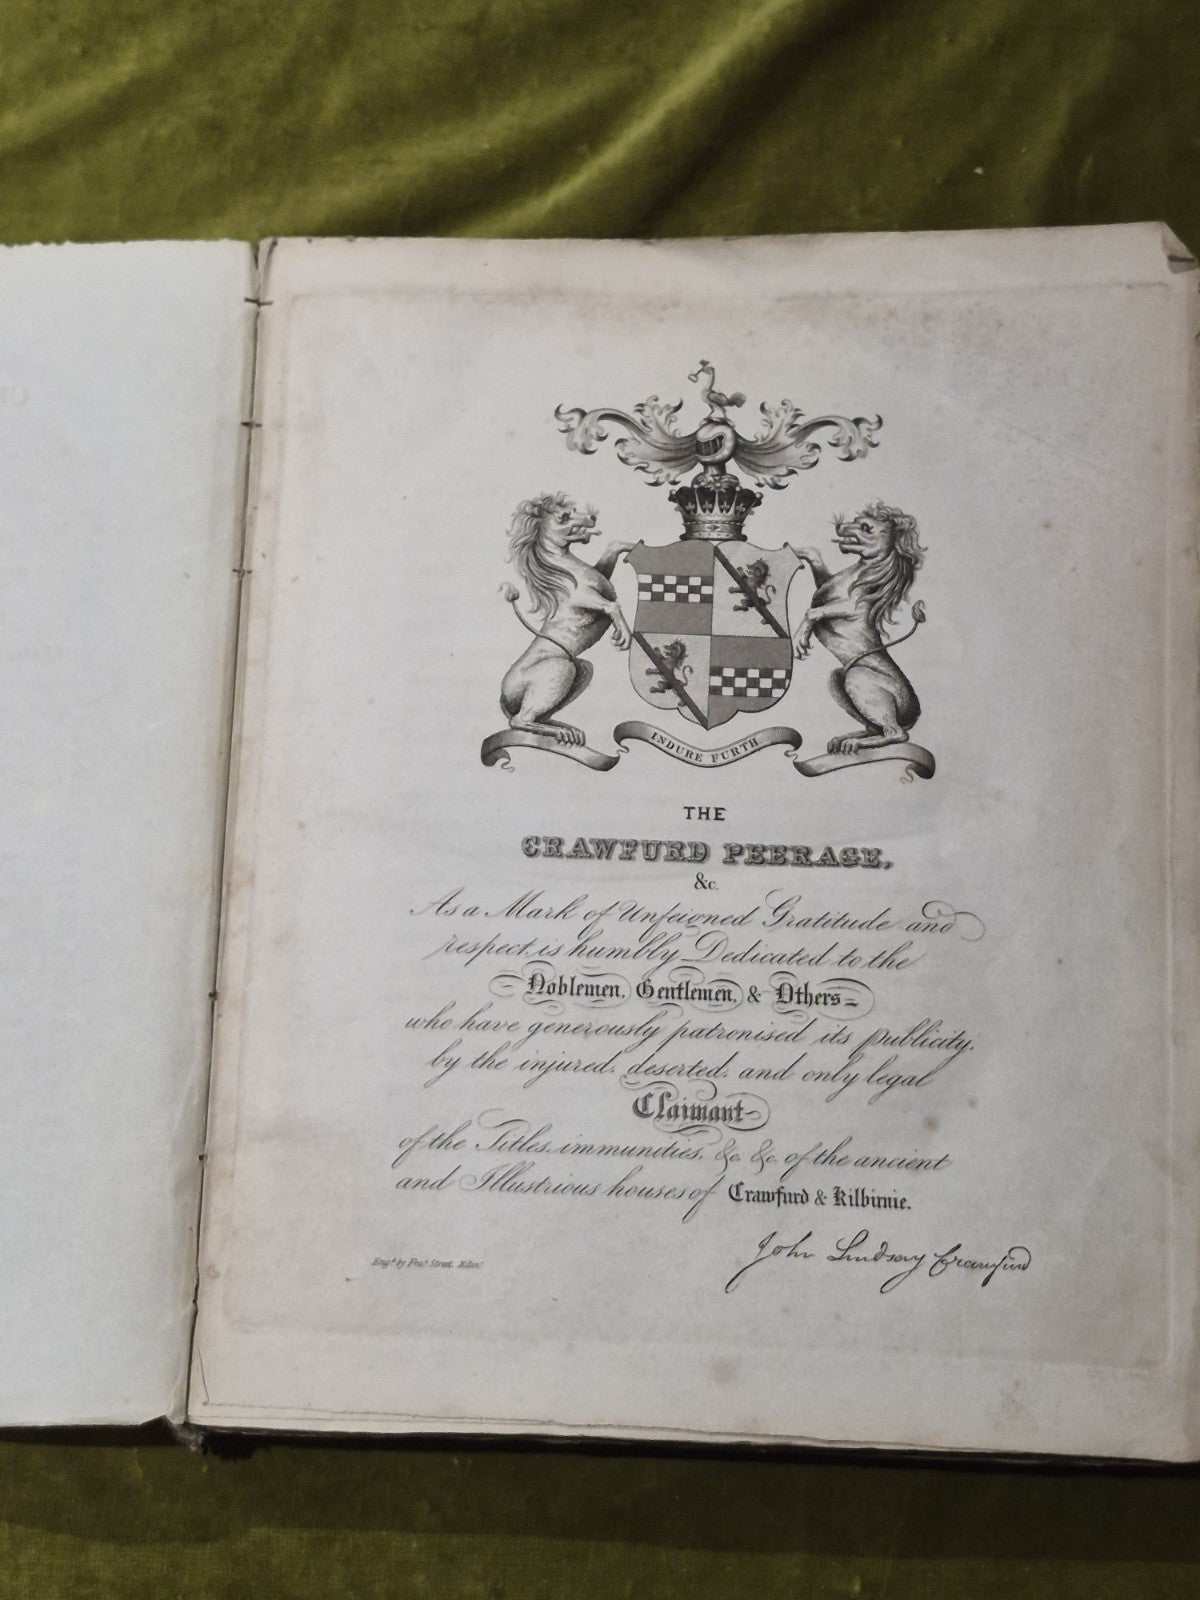 INDURE FURTH
THE
CRAWFURD PEERAGE,
&c.
As a Mark of Unfeigned Gratitude and
respect, is humbly Dedicated to the
Noblemen, Gentlemen, & Others
who have generously patronised its publicity,
by the injured, deserted, and only legal
Claimant
of the Titles, immunities, &c. &c. of the ancient
and Illustrious houses of Crawfurd & Kilbirnie.
John Lindsay Crawfurd
Engd. by Street. Edinr.